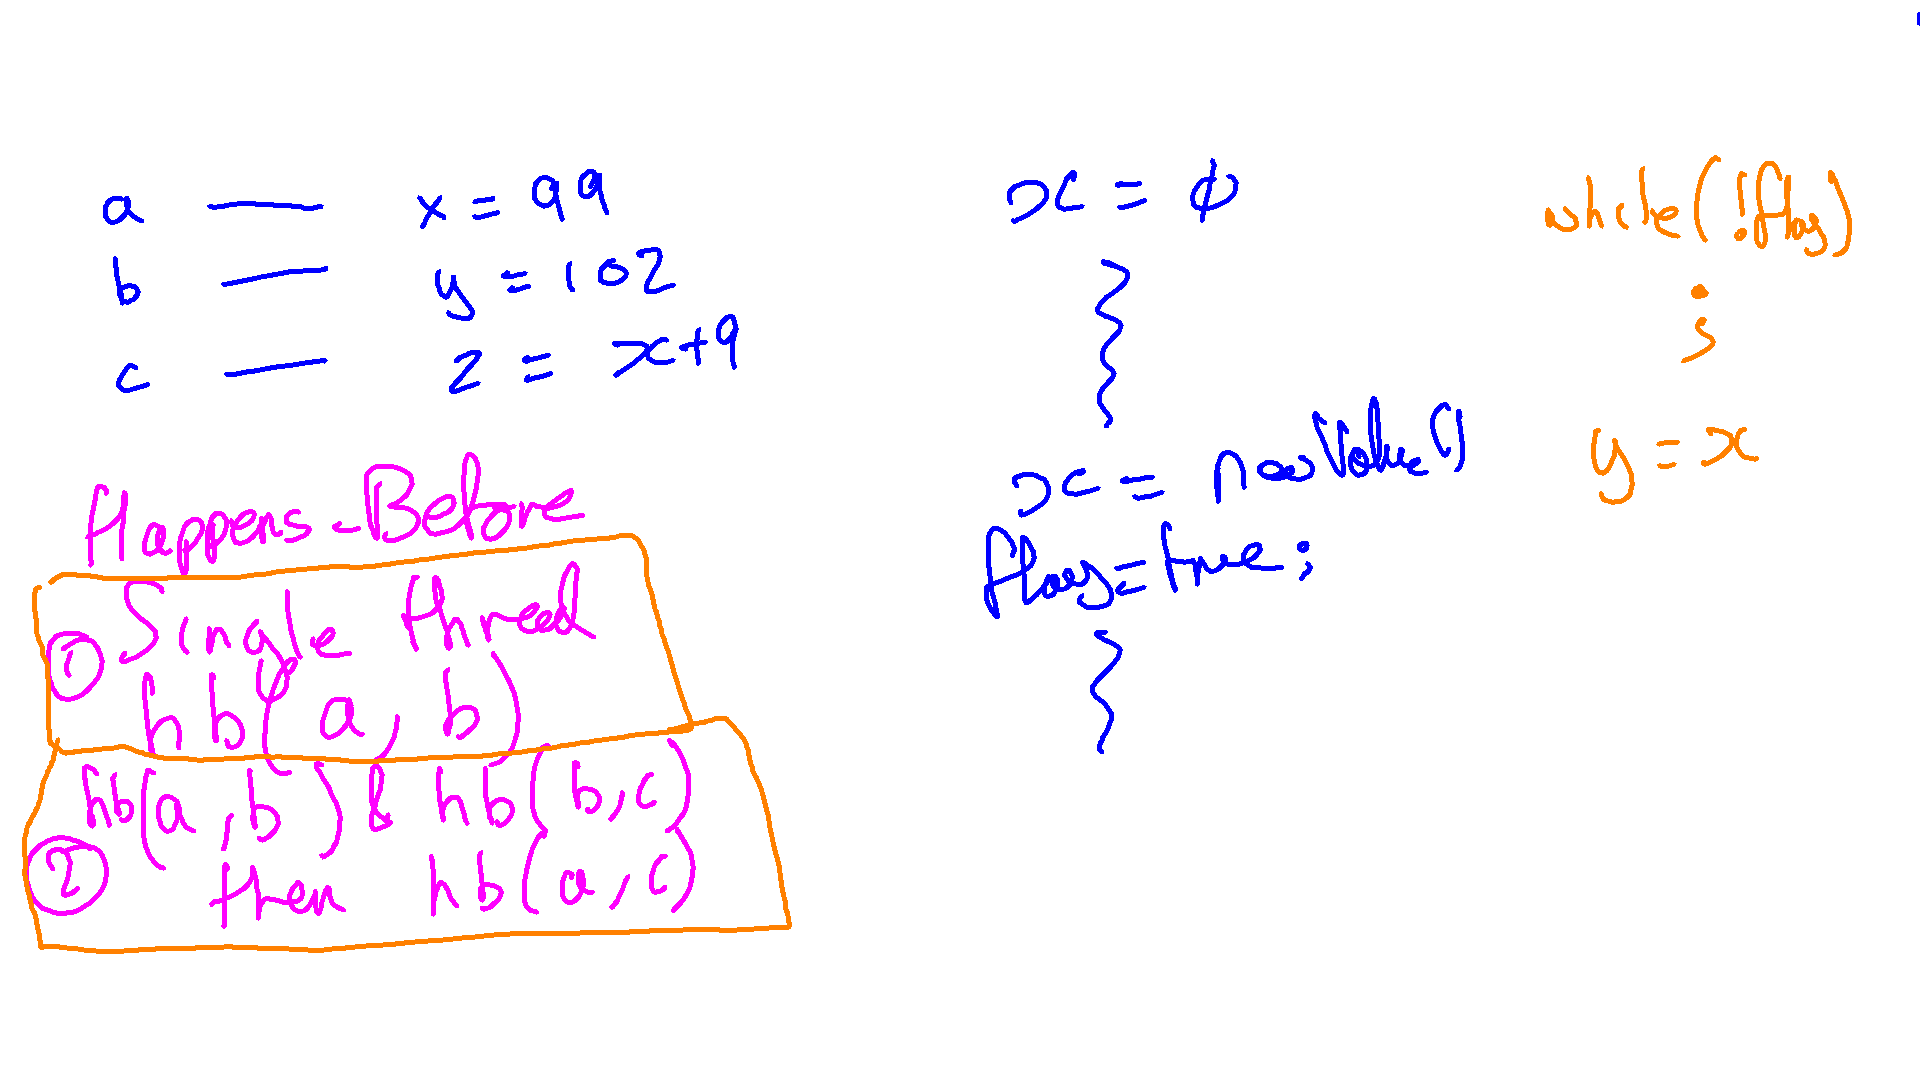 a — x = 99
b — y = 102
c — z = x+9
Happens-Before
① Single thread
hb(a, b)
hb(a,b) & hb(b,c)
② then hb(a,c)
x = ϕ
x = newValue()
flag=true;
while(!flag)
;
y = x